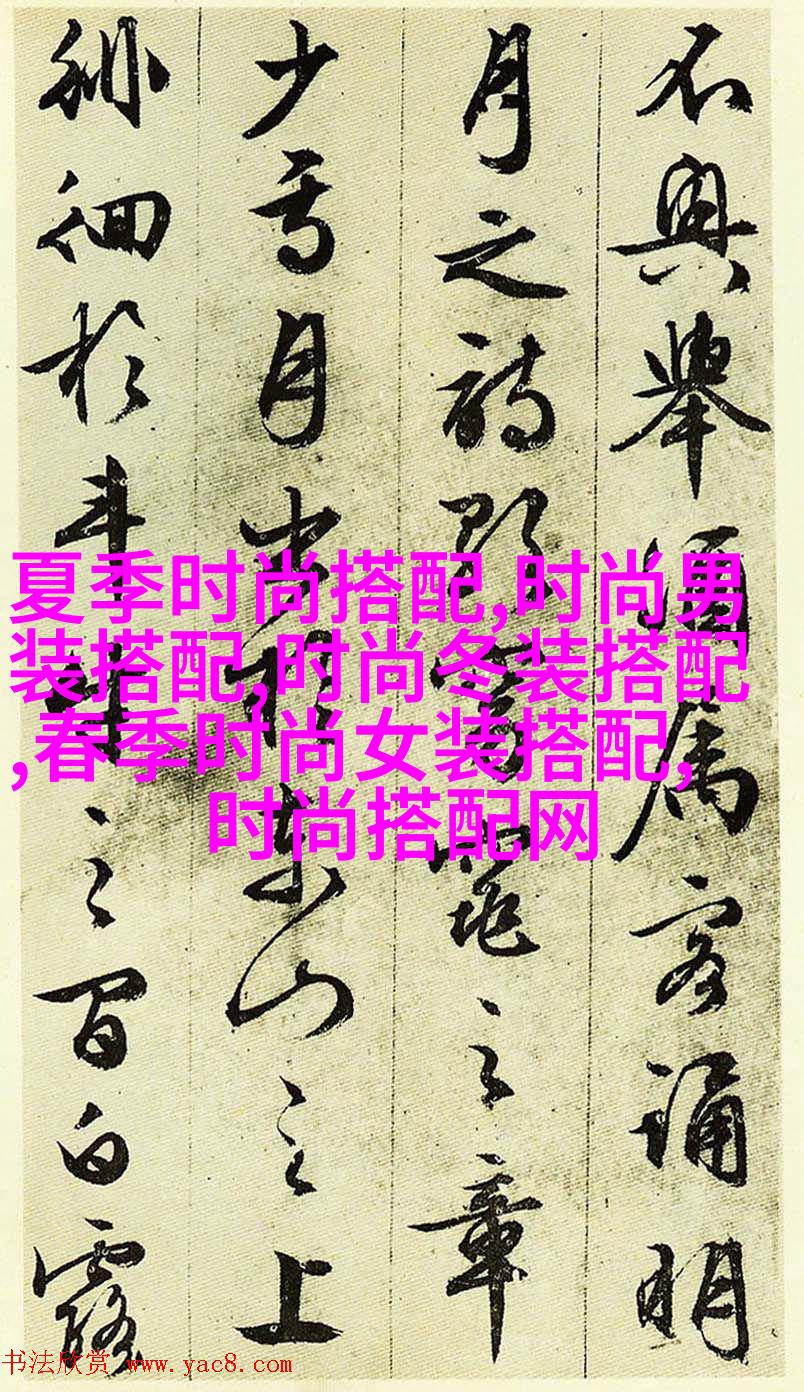 不興舉酒属客誦明
月之詩歌窈窕之章
少焉月出於東山之上
徘徊於斗牛之間白露
夏季时尚搭配,时尚男
装搭配,时尚冬装搭配
,春季时尚女装搭配,
时尚搭配网
书法欣赏 www.yac8.com